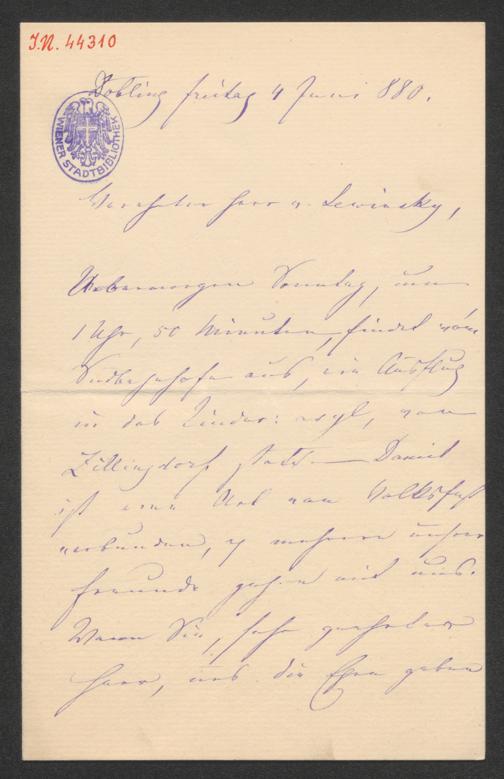 I.N. 44310
WIENER STADTBIBLIOTHEK
Döbling freitag 4 Juni 880.
Verehrter Herr v. Lewinsky,
Uebermorgen Sonntag, um
1 Uhr, 50 Minuten, findet vom
Südbahnhofe aus, ein Ausflug
in das Kinder: asyl, von
Zillingdorf statt. — Damit
ist eine Art von Volksfest
verbunden, u mehrere unserer
Freunde gehen mit uns.
Wenn Sie, sehr geehrter
Herr, uns die Ehre geben